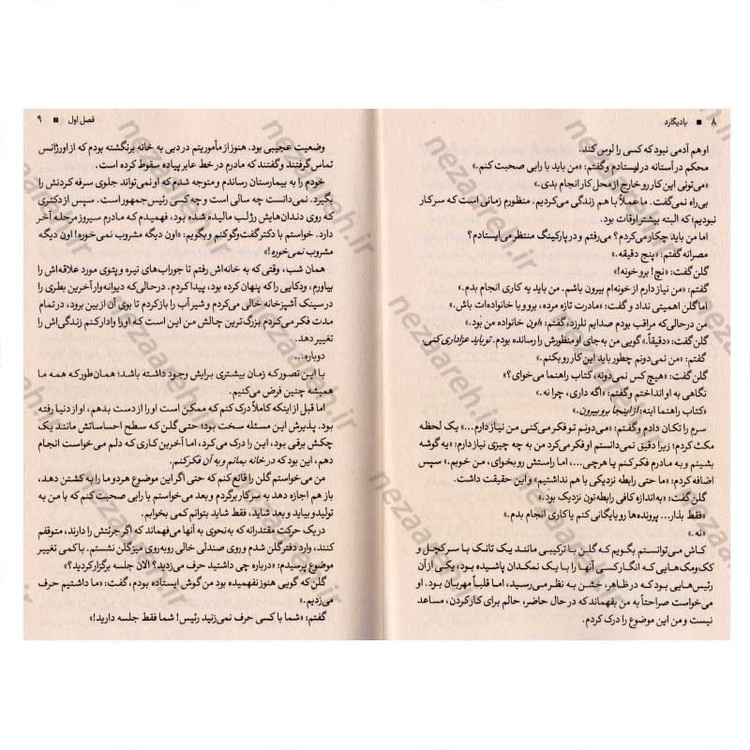 ۸ ■ بادیگارد
او هم آدمی نبود که کسی را لوس کند.
محکم در آستانه در ایستادم و گفتم: «من باید با رابی صحبت کنم.»
«می‌تونی این کار رو خارج از محل کار انجام بدی.»
بی‌راه نمی‌گفت. ما عملاً با هم زندگی می‌کردیم. منظورم زمانی است که سر کار
نبودیم؛ که البته بیشتر اوقات بود.
اما من باید چکار می‌کردم؟ می‌رفتم و در پارکینگ منتظر می‌ایستادم؟
مصرانه گفتم: «پنج دقیقه.»
گلن گفت: «نچ! برو خونه!»
گفتم: «من نیاز دارم از خونه‌ام بیرون باشم. من باید یه کاری انجام بدم.»
اما گلن اهمیتی نداد و گفت: «مادرت تازه مرده، برو و با خانواده‌ات باش.»
من درحالی‌که مراقب بودم صدایم نلرزد، گفتم: «اون خانواده من بود.»
گلن گفت: «دقیقاً.» گویی من به‌جای او منظورش را رسانده بودم. «تو باید عزاداری کنی.»
گفتم: «من نمی‌دونم چطور باید این کار رو بکنم.»
گلن گفت: «هیچ کس نمی‌دونه، کتاب راهنما می‌خوای؟»
نگاهی به او انداختم و گفتم: «اگه داری، چرا نه.»
«کتاب راهنما اینه: از اینجا برو بیرون.»
سرم را تکان دادم و گفتم: «می‌دونم تو فکر می‌کنی من نیاز دارم...» یک لحظه
مکث کردم؛ زیرا دقیق نمی‌دانستم او فکر می‌کرد من به چه چیزی نیاز دارم: «یه گوشه
بشینم و به مادرم فکر کنم یا هرچی... اما راستش رو بخوای، من خوبم.» سپس
اضافه کردم: «ما حتی رابطه نزدیکی با هم نداشتیم» و این حقیقت داشت.
گلن گفت: «به‌اندازه کافی رابطه‌تون نزدیک بود.»
«فقط بذار... پرونده‌ها رو بایگانی کنم یا کاری انجام بدم.»
«نه.»
کاش می‌توانستم بگویم که گلن با ترکیبی مانند یک تانک با سر کچل و
کک‌ومک‌هایی که انگار کسی آنها را با یک نمکدان پاشیده بود، یکی از آن
رئیس‌هایی بود که در ظاهر، خشن به نظر می‌رسید، اما قلباً مهربان بود. او
می‌خواست صراحتاً به من بفهماند که در حال حاضر، حالم برای کار کردن، مساعد
نیست و من این موضوع را درک کردم.
فصل اول ■ ۹
وضعیت عجیبی بود. هنوز از مأموریتم در دبی به خانه برنگشته بودم که از اورژانس
تماس گرفتند و گفتند که مادرم در خط عابر پیاده سقوط کرده است.
خودم را به بیمارستان رساندم و متوجه شدم که او نمی‌تواند جلوی سرفه کردنش را
بگیرد. نمی‌دانست چه سالی است و چه کسی رئیس‌جمهور است. سپس از دکتری
که روی دندان‌هایش رژلب مالیده شده بود، فهمیدم که مادرم سیروز مرحله آخر
دارد. خواستم با دکتر گفت‌وگو کنم و بگویم: «اون دیگه مشروب نمی‌خوره! اون دیگه
مشروب نمی‌خوره!»
همان شب، وقتی که به خانه‌اش رفتم تا جوراب‌های تیره و پتوی مورد علاقه‌اش را
بیاورم، ودکایی را که پنهان کرده بود، پیدا کردم. درحالی‌که دیوانه‌وار آخرین بطری را
در سینک آشپزخانه خالی می‌کردم و شیر آب را باز کردم تا بوی آن از بین برود، در تمام
مدت فکر می‌کردم بزرگ‌ترین چالش من این است که او را وادار کنم زندگی‌اش را
تغییر دهد.
دوباره...
با این تصور که زمان بیشتری برایش وجود داشته باشد؛ همان‌طور که همه ما
همیشه چنین فرض می‌کنیم.
اما قبل از اینکه کاملاً درک کنم که ممکن است او را از دست بدهم، او از دنیا رفته
بود. پذیرش این مسئله سخت بود؛ حتی گلن که سطح احساساتش مانند یک
چکش برقی بود، این را درک می‌کرد، اما آخرین کاری که دلم می‌خواست انجام
دهم، این بود که در خانه بمانم و به آن فکر کنم.
من می‌خواستم گلن را قانع کنم که حتی اگر این موضوع هردو ما را به کشتن دهد،
باز هم اجازه دهد به سر کار برگردم و بعد می‌خواستم با رابی صحبت کنم که با من به
تولیدو بیاید و بعد شاید، فقط شاید بتوانم کمی بخوابم.
در یک حرکت مقتدرانه که به‌نحوی به آنها می‌فهماند که اگر جرئتش را دارند، متوقفم
کنند، وارد دفتر گلن شدم و روی صندلی خالی روبه‌روی میز گلن نشستم. با کمی تغییر
موضوع پرسیدم: «درباره چی داشتید حرف می‌زدید؟ الان جلسه برگزار کردید؟»
گلن که گویی هنوز نفهمیده بود من گوش ایستاده بودم، گفت: «ما داشتیم حرف
می‌زدیم.»
گفتم: «شما با کسی حرف نمی‌زنید رئیس! شما فقط جلسه دارید!»
nezaareh.ir